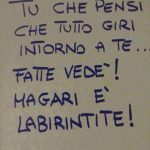 TU CHE PENSI
CHE TUTTO GIRI
INTORNO A TE...
FATTE VEDE'!
MAGARI E'
LABIRINTITE!